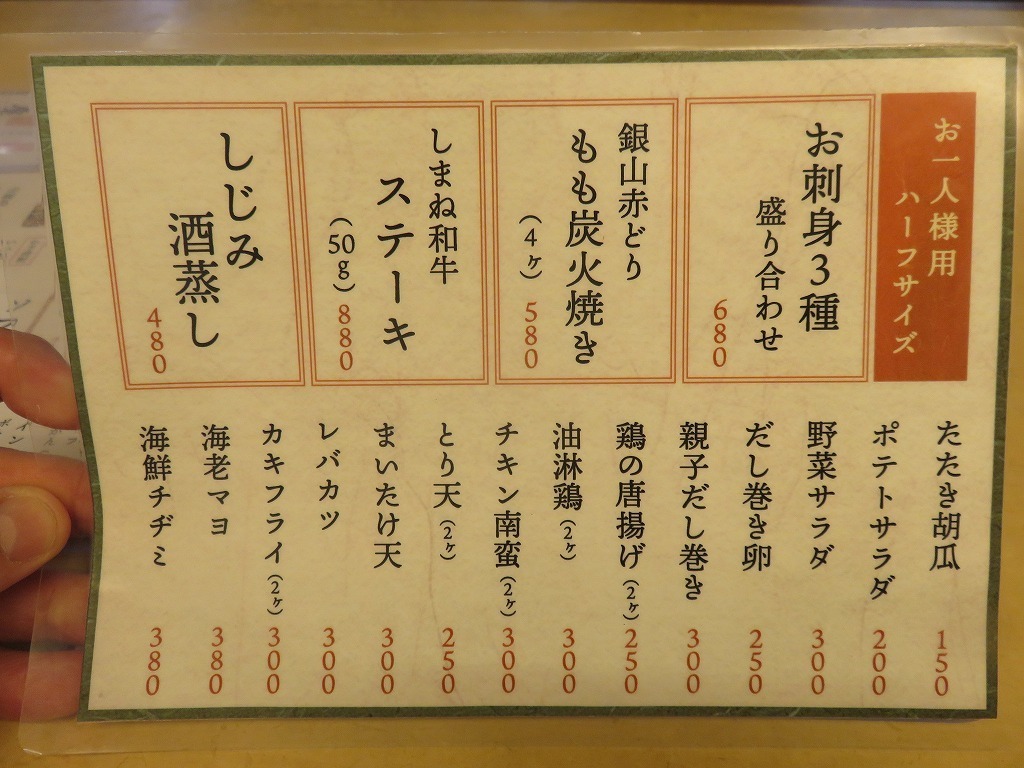 お一人様用
ハーフサイズ
お刺身3種
盛り合わせ
680
銀山赤どり
もも炭火焼き
(4ヶ)
580
しまね和牛
ステーキ
(50g)
880
しじみ
酒蒸し
480
たたき胡瓜
150
ポテトサラダ
200
野菜サラダ
300
だし巻き卵
250
親子だし巻き
300
鶏の唐揚げ(2ヶ)
250
油淋鶏(2ヶ)
300
チキン南蛮(2ヶ)
300
とり天(2ヶ)
250
まいたけ天
300
レバカツ
300
カキフライ(2ヶ)
300
海老マヨ
380
海鮮チヂミ
380